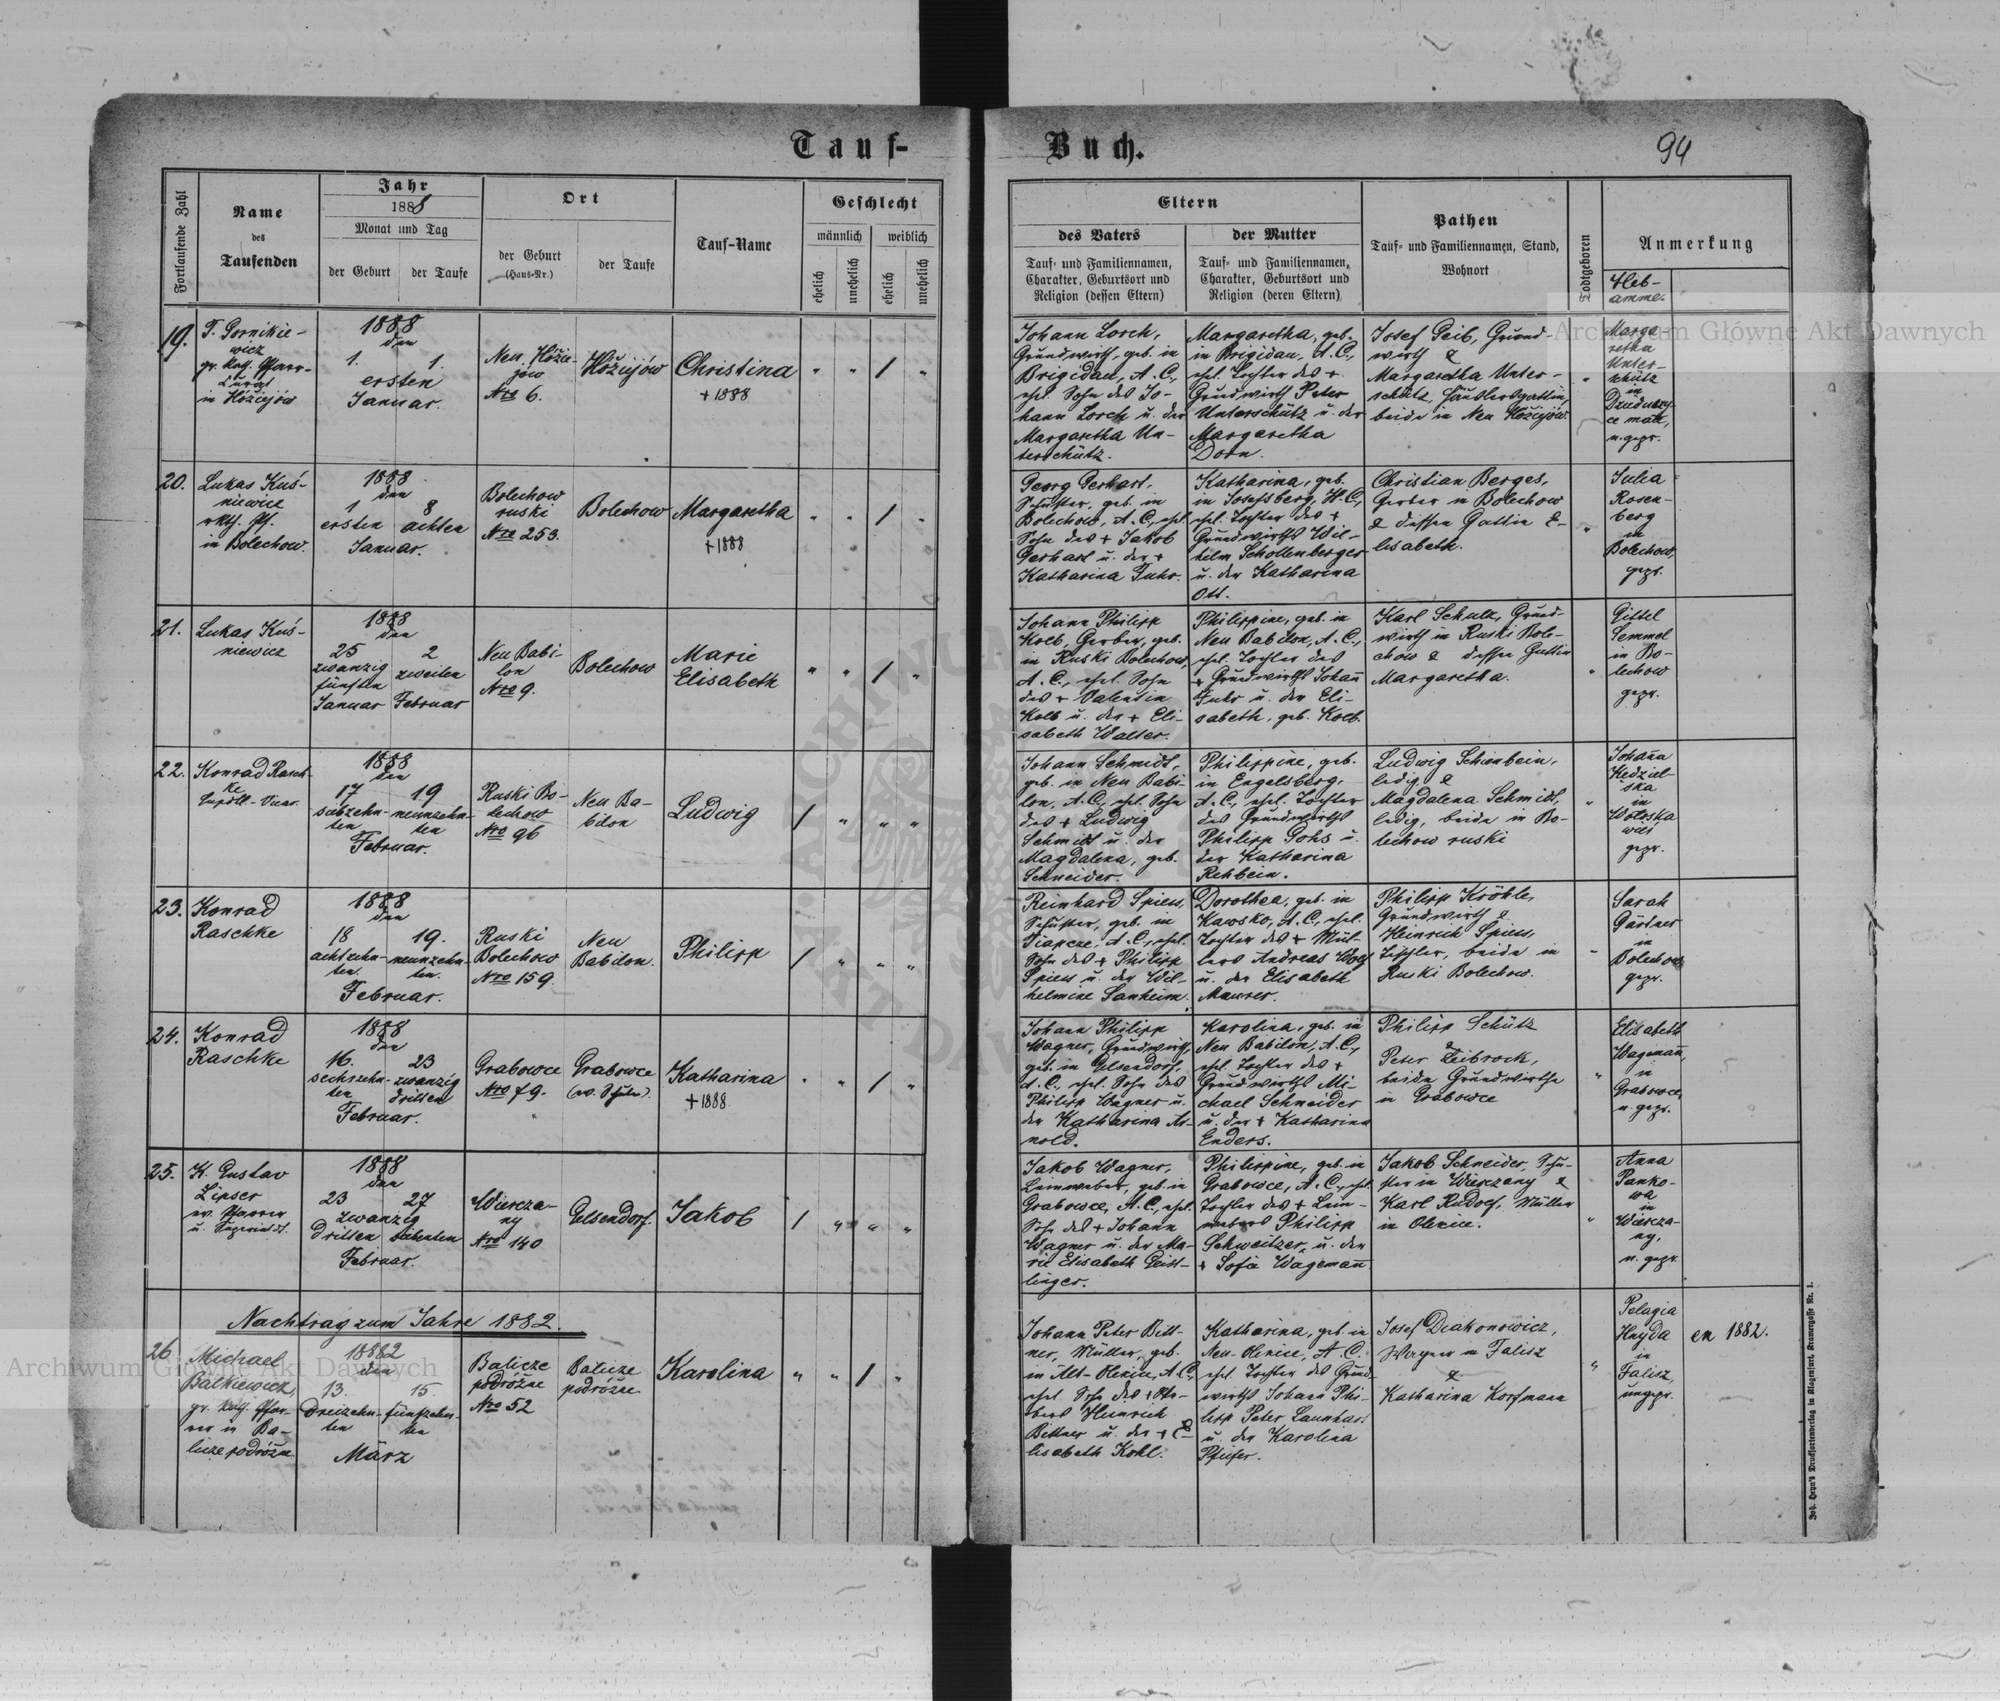 Tauf-
Buch.
94
Fortlaufende Zahl
Name
des
Taufenden
Jahr
1888
Monat und Tag
der Geburt
der Taufe
Ort
der Geburt
(Haus-Nr.)
der Taufe
Tauf-Name
Geschlecht
männlich
weiblich
ehelich
unehelich
ehelich
unehelich
Eltern
des Vaters
Tauf- und Familiennamen,
Charakter, Geburtsort und
Religion (dessen Eltern)
der Mutter
Tauf- und Familiennamen,
Charakter, Geburtsort und
Religion (deren Eltern)
Pathen
Tauf- und Familiennamen, Stand,
Wohnort
Todtgeboren
Anmerkung
Heb-
amme.
19.
gr. kath. Pfarr-
1888
den
1. 1.
ersten
Januar.
Nro 6.
Christina
+ 1888
/
Johann Lorch,
Grundwirth, geb. in
Brigidau, A. C.,
ehel. Sohn des Jo-
hann Lorch u. der
Margaretha Un-
terschütz.
Margaretha, geb.
in Brigidau, A. C.,
ehel. Tochter des +
Grundwirth Peter
Unterschütz u. der
Margaretha
Dorn.
Josef Geib, Grund-
wirth &
Margaretha Unter-
schütz, Häuslersgattin,
beide in Neu
Marga-
retha
Unter-
schütz
in
n. gepr.
20.
Lukas Kuś-
niewicz
in Bolechow.
1888
den
1 8
ersten achten
Januar.
Bolechow
ruski
Nro 253.
Bolechow
Margaretha
+ 1888
/
Georg Gerhart,
Schuster, geb. in
Bolechow, A. C., ehel.
Sohn des + Jakob
Gerhart u. der +
Katharina Fuhr.
Katharina, geb.
in Josefsberg, H. C.,
ehel. Tochter des +
Grundwirths Wil-
helm Schollenberger
u. der Katharina
Ott.
Christian Berges,
Gerber in Bolechow
& dessen Gattin E-
lisabeth.
Julia
Rosen-
berg
in
Bolechow,
gepr.
21.
Lukas Kuś-
niewicz
1888
den
25 2
zwanzig zweiten
fünften
Januar Februar
Neu Babi-
lon
Nro 9.
Bolechow
Marie
Elisabeth
/
Johann Philipp
Kolb, Gerber, geb.
in Ruski Bolechow,
A. C., ehel. Sohn
des + Valentin
Kolb u. der + Eli-
sabeth Walter.
Philippine, geb. in
Neu Babilon, A. C.,
ehel. Tochter des
+ Grundwirths Johann
Fuhr u. der Eli-
sabeth, geb. Kolb.
Karl Schulz, Grund-
wirth in Ruski Bole-
chow & dessen Gattin
Margaretha.
Gittel
Semmel
in Bo-
lechow
gepr.
22.
Konrad Rasch-
ke
1888
den
17 19
siebzehn- neunzehn-
ten ten
Februar.
Ruski Bo-
lechow
Nro 96
Neu Ba-
bilon
Ludwig
/
Johann Schmidt,
geb. in Neu Babi-
lon, A. C., ehel. Sohn
des + Ludwig
Schmidt u. der
Magdalena, geb.
Schneider.
Philippine, geb.
in Engelsberg,
A. C., ehel. Tochter
des Grundwirths
Philipp Gohs u.
der Katharina
Rehbein.
Ludwig Schienbein,
ledig &
Magdalena Schmidt,
ledig, beide in Bo-
lechow ruski
Johanna
Kedziel-
ska
in
Wołoska
wieś
gepr.
23.
Konrad
Raschke
1888
den
18 19.
achtzehn- neunzehn-
ten. ten.
Februar.
Ruski
Bolechow
Nro 159.
Neu
Babilon.
Philipp
/
Reinhard Spiess,
Schuster, geb. in
A. C., ehel.
Sohn des + Philipp
Spiess u. der Wil-
helmine Sanheim.
Dorothea, geb. in
Kawsko, A. C., ehel.
Tochter des + Mül-
lers Andreas Wolf
u. der Elisabeth
Maurer.
Philipp Kröhle,
Grundwirth &
Heinrich Spiess,
Tischler, beide in
Ruski Bolechow.
Sarah
Gärtner
in
Bolechow
gepr.
24.
Konrad
Raschke
1888
den
16. 23
sechszehn- zwanzig
ten dritten
Februar.
Grabowce
Nro 79.
Grabowce
(ev. Schule).
Katharina
+ 1888.
/
Johann Philipp
Wagner, Grundwirth,
geb. in Gelsendorf,
A. C., ehel. Sohn des
Philipp Wagner u.
der Katharina Ar-
nold.
Karolina, geb. in
Neu Babilon, A. C.,
ehel. Tochter des +
Grundwirths Mi-
chael Schneider
u. der + Katharina
Enders.
Philipp Schütz
&
Peter Leibrock,
beide Grundwirthe
in Grabowce
Elisabeth
Wagemann,
in
Grabowce,
n. gepr.
25.
K. Gustav
Lipser
ev. Pfarrer
u. Superindt.
1888
den
23 27
zwanzig
dritten siebenten
Februar.
Wiercza-
ny
Nro 140
Gelsendorf.
Jakob
/
Jakob Wagner,
Leinweber, geb. in
Grabowce, A. C., ehel.
Sohn des + Johann
Wagner u. der Ma-
rie Elisabeth Geist-
linger.
Philippine, geb. in
Grabowce, A. C., ehel.
Tochter des + Lein-
webers Philipp
Schweitzer u. der
+ Sofia Wagemann
Jakob Schneider, Schu-
ster in Wierczany &
Karl Rudolf, Müller
in Olexice.
Anna
Panko-
wa
in
Wiercza-
ny,
n. gepr.
Nachtrag zum Jahre 1882.
26
Michael
Balkiewicz,
gr. kath. Pfar-
rer in Ba-
licze podróżne
18882
den
13. 15.
Dreizehn- fünfzehn-
ten ten
März
Balicze
podróżne
Nro 52
Balicze
podróżne
Karolina
/
Johann Peter Bitt-
ner, Müller, geb.
in Alt-Olexice, A. C.,
Heinrich
Bittner u. der + E-
lisabeth Kohl.
Katharina, geb. in
Neu-Olexice, A. C.
ehel. Tochter des Grund-
wirths Johann Phi-
lipp Peter Launhar.
u. der Karolina
Pfeifer.
Josef Diakonowicz,
Wagner in Falisz
&
Katharina Korfmann
Pelagia
Hnyda
in
Falisz,
ungepr.
en 1882.
Joh. Heyn's Drucksortenverlag in Klagenfurt, Kramergasse Nr. 1.
Archiwum Główne Akt Dawnych
Archiwum Główne Akt Dawnych